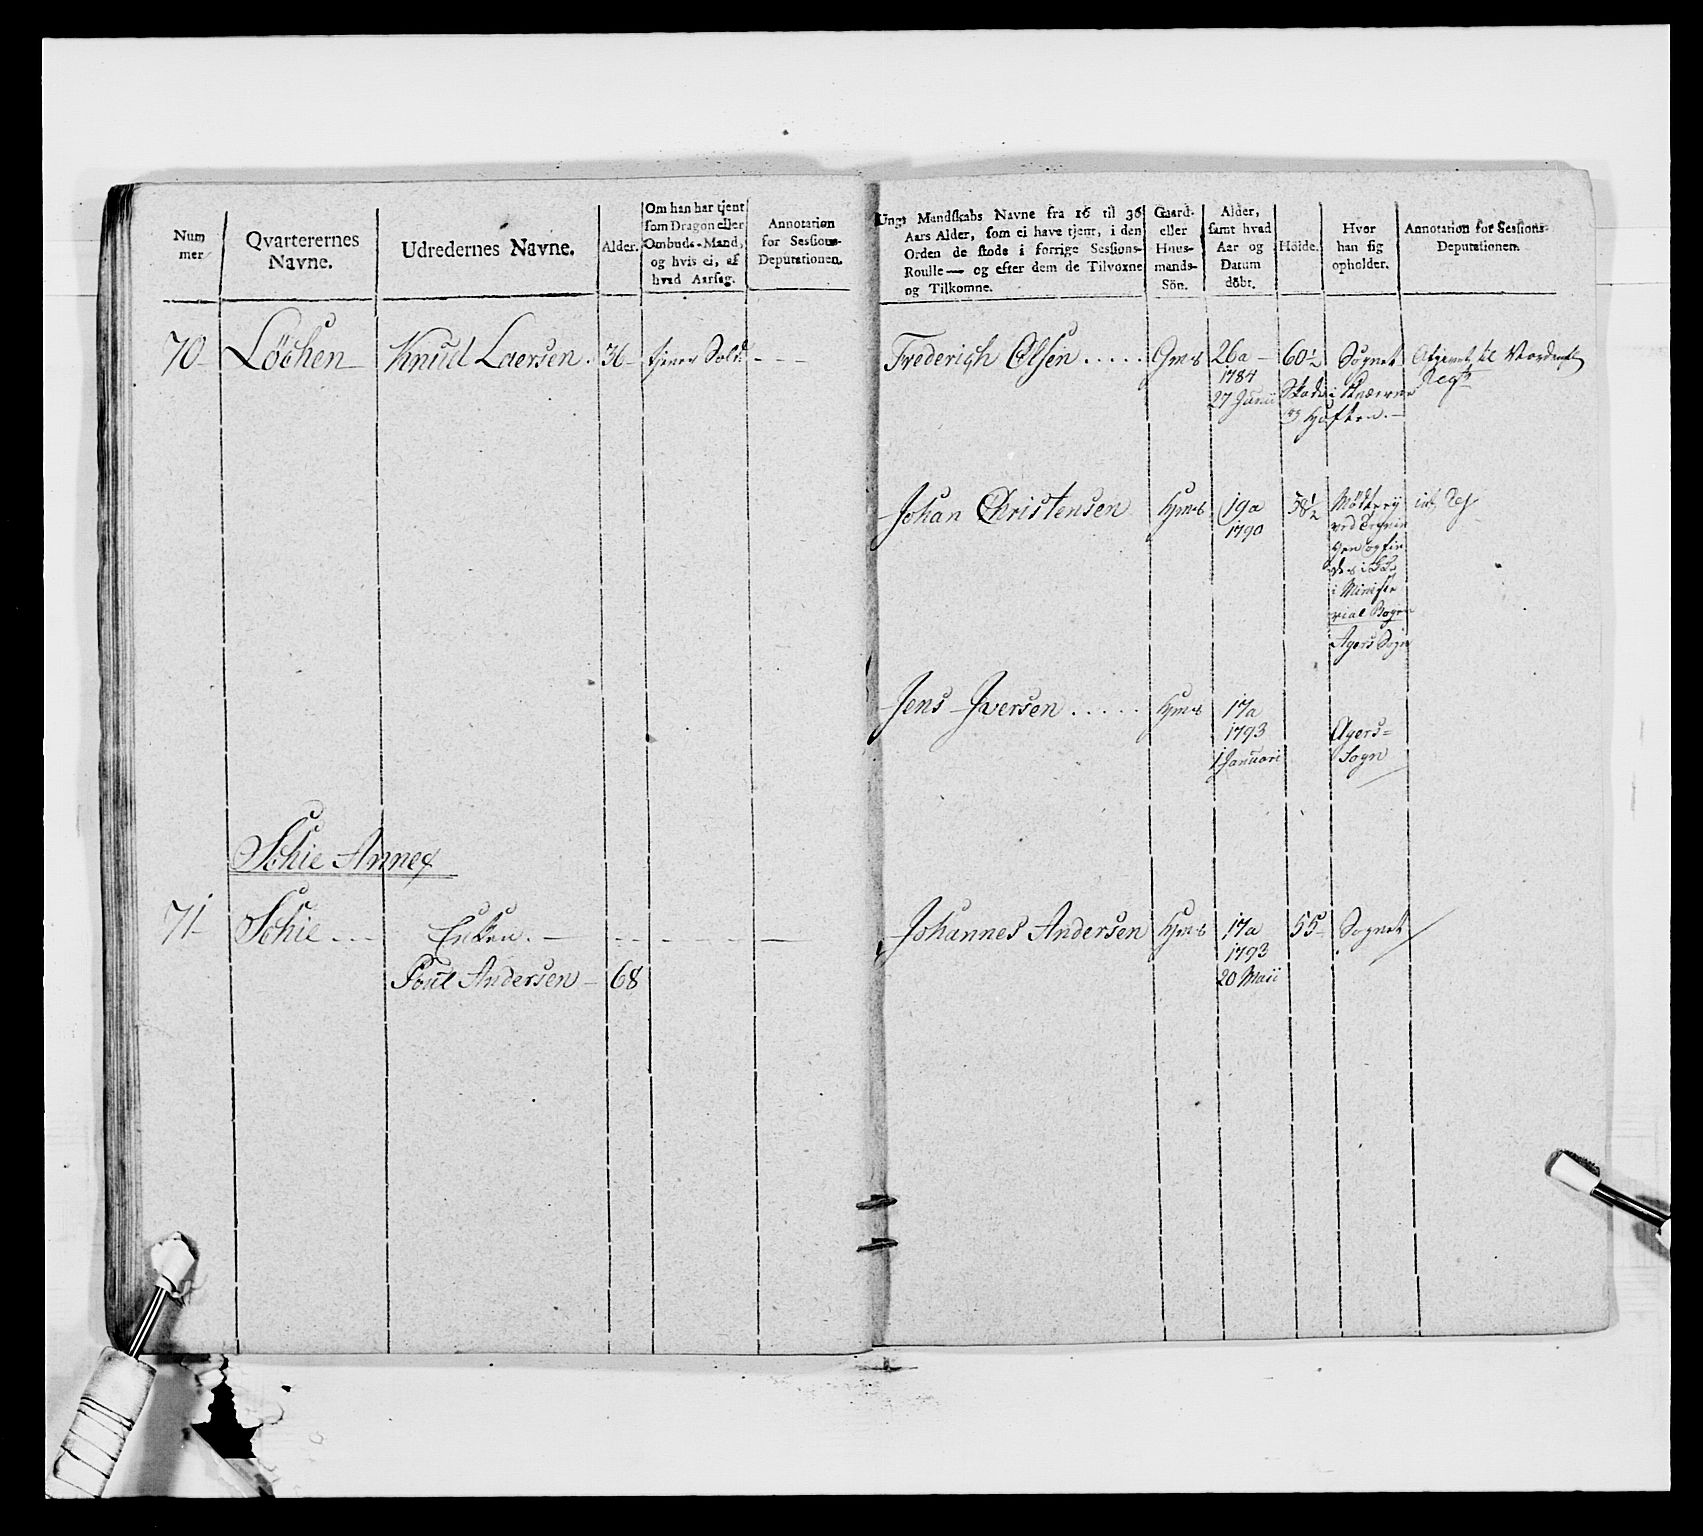 Num
mer
Qvarterernes
Navne.
Udredernes Navne.
Alder.
Om han har tjent
som Dragon eller
Ombuds-Mand,
og hvis ei, af
hvad Aarsag.
Annotation
for Sessions-
Deputationen.
Ungt Mandskabs Navne fra 16 til 36
Aars Alder, som ei have tjent, i den
Orden de stode i forrige Sessions-
Roulle — og efter dem de Tilvoxne
og Tilkomne.
Gaard-
eller
Huus-
mands-
Sön.
Alder,
samt hvad
Aar og
Datum
döbt.
Höide.
Hvor
han sig
opholder.
Annotation for Sessions-
Deputationen.
70 Löchen Knud Laersen. 36 tjener Sold. - - -
Frederich Olsen ..... Gms 26a 60½ Sognet Afgivet til Nordenfl
1784 Regt
27 Junii Skade i Knæerne
og Hoften. -
Johan Christensen Hms 19a 58½ Mödte ey
1790
i Ministe
rial Bogen
Agers Sogn
Jens Iversen ..... Hms 17a
1793 Agers=
1 Januari Sogn
Schie Annex
71 Schie - - - Enken. - - - - - -
Poul Andersen - 68
Johannes Andersen Hms 17a 55 Sognet
1793
20 Maii